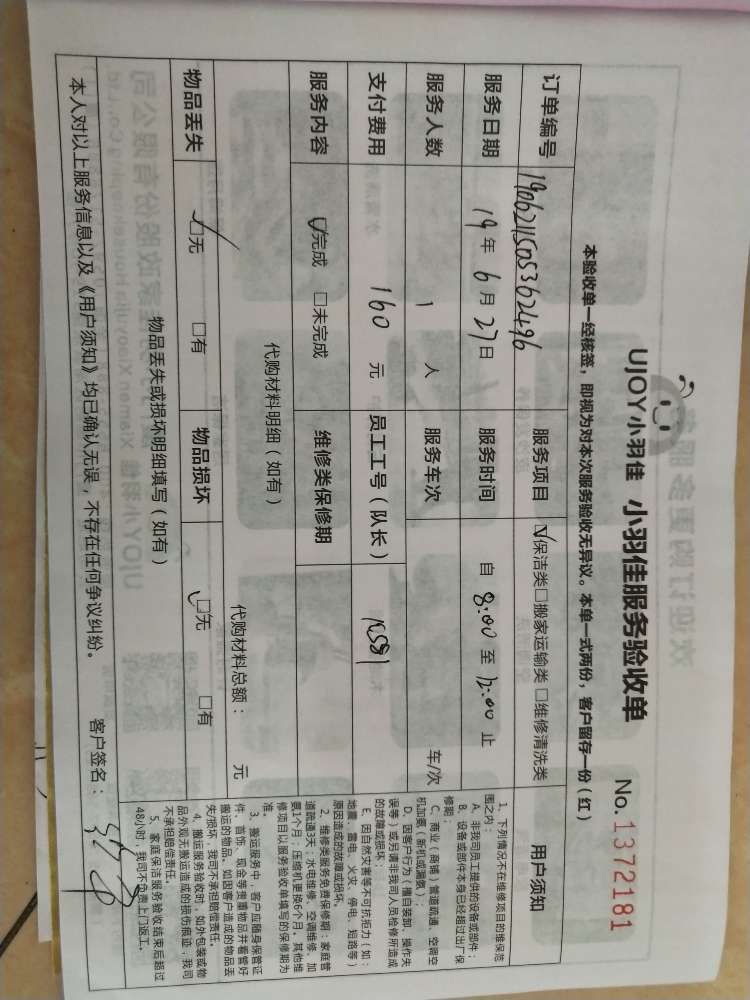 UJOY小羽佳 小羽佳服务验收单 No.13721181
本验收单一经核签，即视为对本次服务验收无异议。本单一式两份，客户留存一份（红）
订单编号 1906211505362496 服务项目 ☑保洁类□搬家运输类 □维修清洗类
服务日期 19年 6月 27日 服务时间 自 8:00 至 12:00 止
服务人数 1 人 服务车次 车/次
支付费用 160 元 员工工号（队长）
服务内容 ☑完成 □未完成 维修类保修期
代购材料明细（如有） 代购材料总额： 元
物品丢失 ☑无 □有 物品损坏 ☑无 □有
物品丢失或损坏明细填写（如有）
本人对以上服务信息以及《用户须知》均已确认无误，不存在任何争议纠纷。 客户签名：
用户须知
1、下列情况不在维修项目的维保范
围之内：
A、非我司员工提供的设备或部件；
B、设备或部件本身已经超过出厂保
修期；
C、商业（商铺）管道疏通、空调空
机加氨（新机或漏氨）；
D、因客户行为（擅自装卸、操作失
误等）或另请非我司人员检修所造成
的故障或损坏；
E、因自然灾害等不可抗拒力（如：
地震、雷电、火灾、停电、短路等）
原因造成的故障或损坏。
2、维修类服务免费保修期：家庭管
道疏通3天；水电维修、空调维修、加
氨1个月；压缩机更换6个月。其他维
修项目以服务验收单填写的保修期为
准。
3、搬运服务中，客户应随身保管证
件、首饰、现金等贵重物品并看管好
搬运的物品。如因客户造成的物品丢
失/损坏，我司不承担赔偿责任。
4、搬运服务验收时，如外包装或物
品外观无搬运造成的损伤痕迹，我司
不承担赔偿责任。
5、家庭保洁服务验收结束后超过
48小时，我司不负责上门返工。